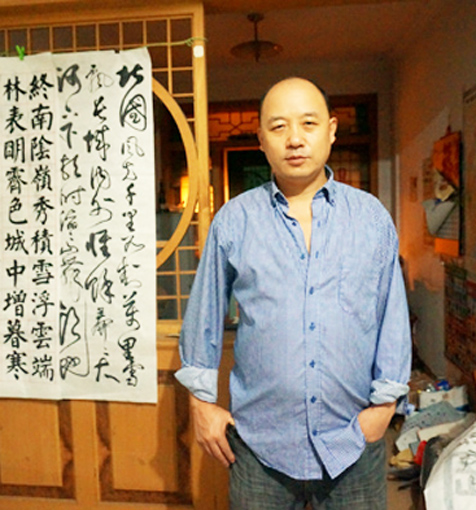 北國風光千里冰封萬里雪
飄長城內外惟餘莽大
河上下
終南陰嶺秀積雪浮雲端
林表明霽色城中增暮寒